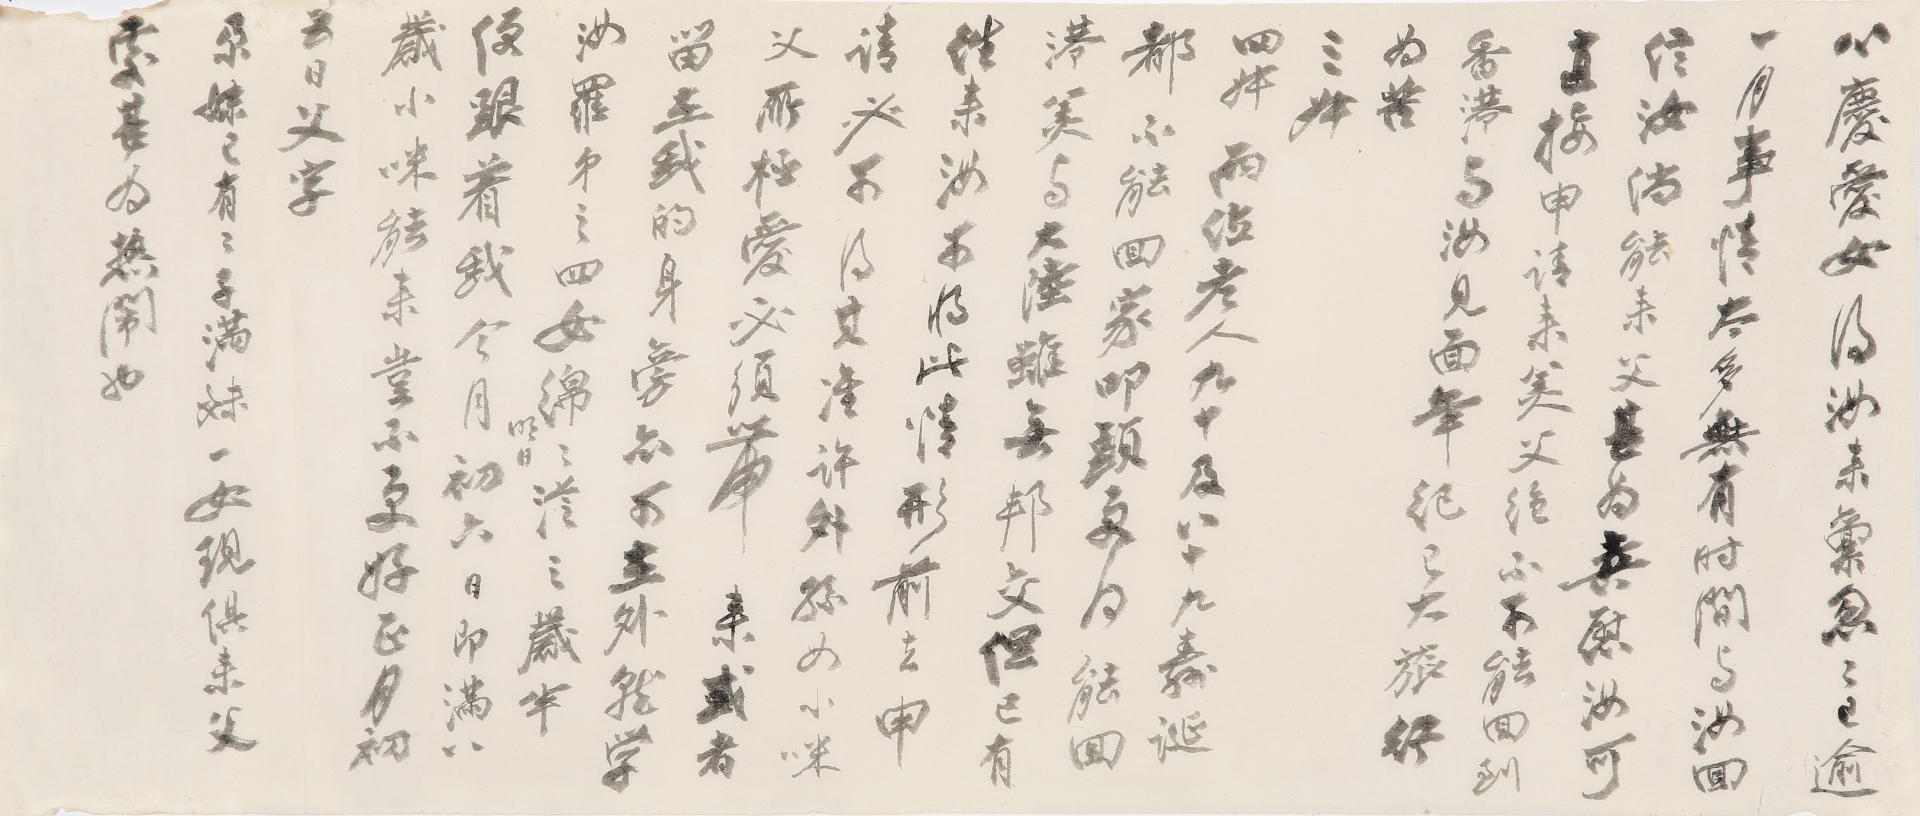 心慶愛女得汝來稟忽々已逾
一月事情太多無有时間与汝回
信汝倘能來父甚為喜慰汝可
直接申請來美父絕不可能回到
香港与汝見面年紀已大旅行
為苦
三姊
四姊兩位老人九十及八十九壽誕
都不能回家叩頭更何能回
港美与大陸雖無邦交但已有
往來汝可將此情形前去申
請必可得其准許外孫女小咪
父所極愛必須帶來或者
留在我的身旁亦可在外就学
汝羅弟之四女綿々澄之歲半
明日
便跟着我今月初六日即滿八
歲小咪能來豈不更好正月初
五日父字
朵妹已有二子滿妹一女現俱來父
處甚為热鬧也